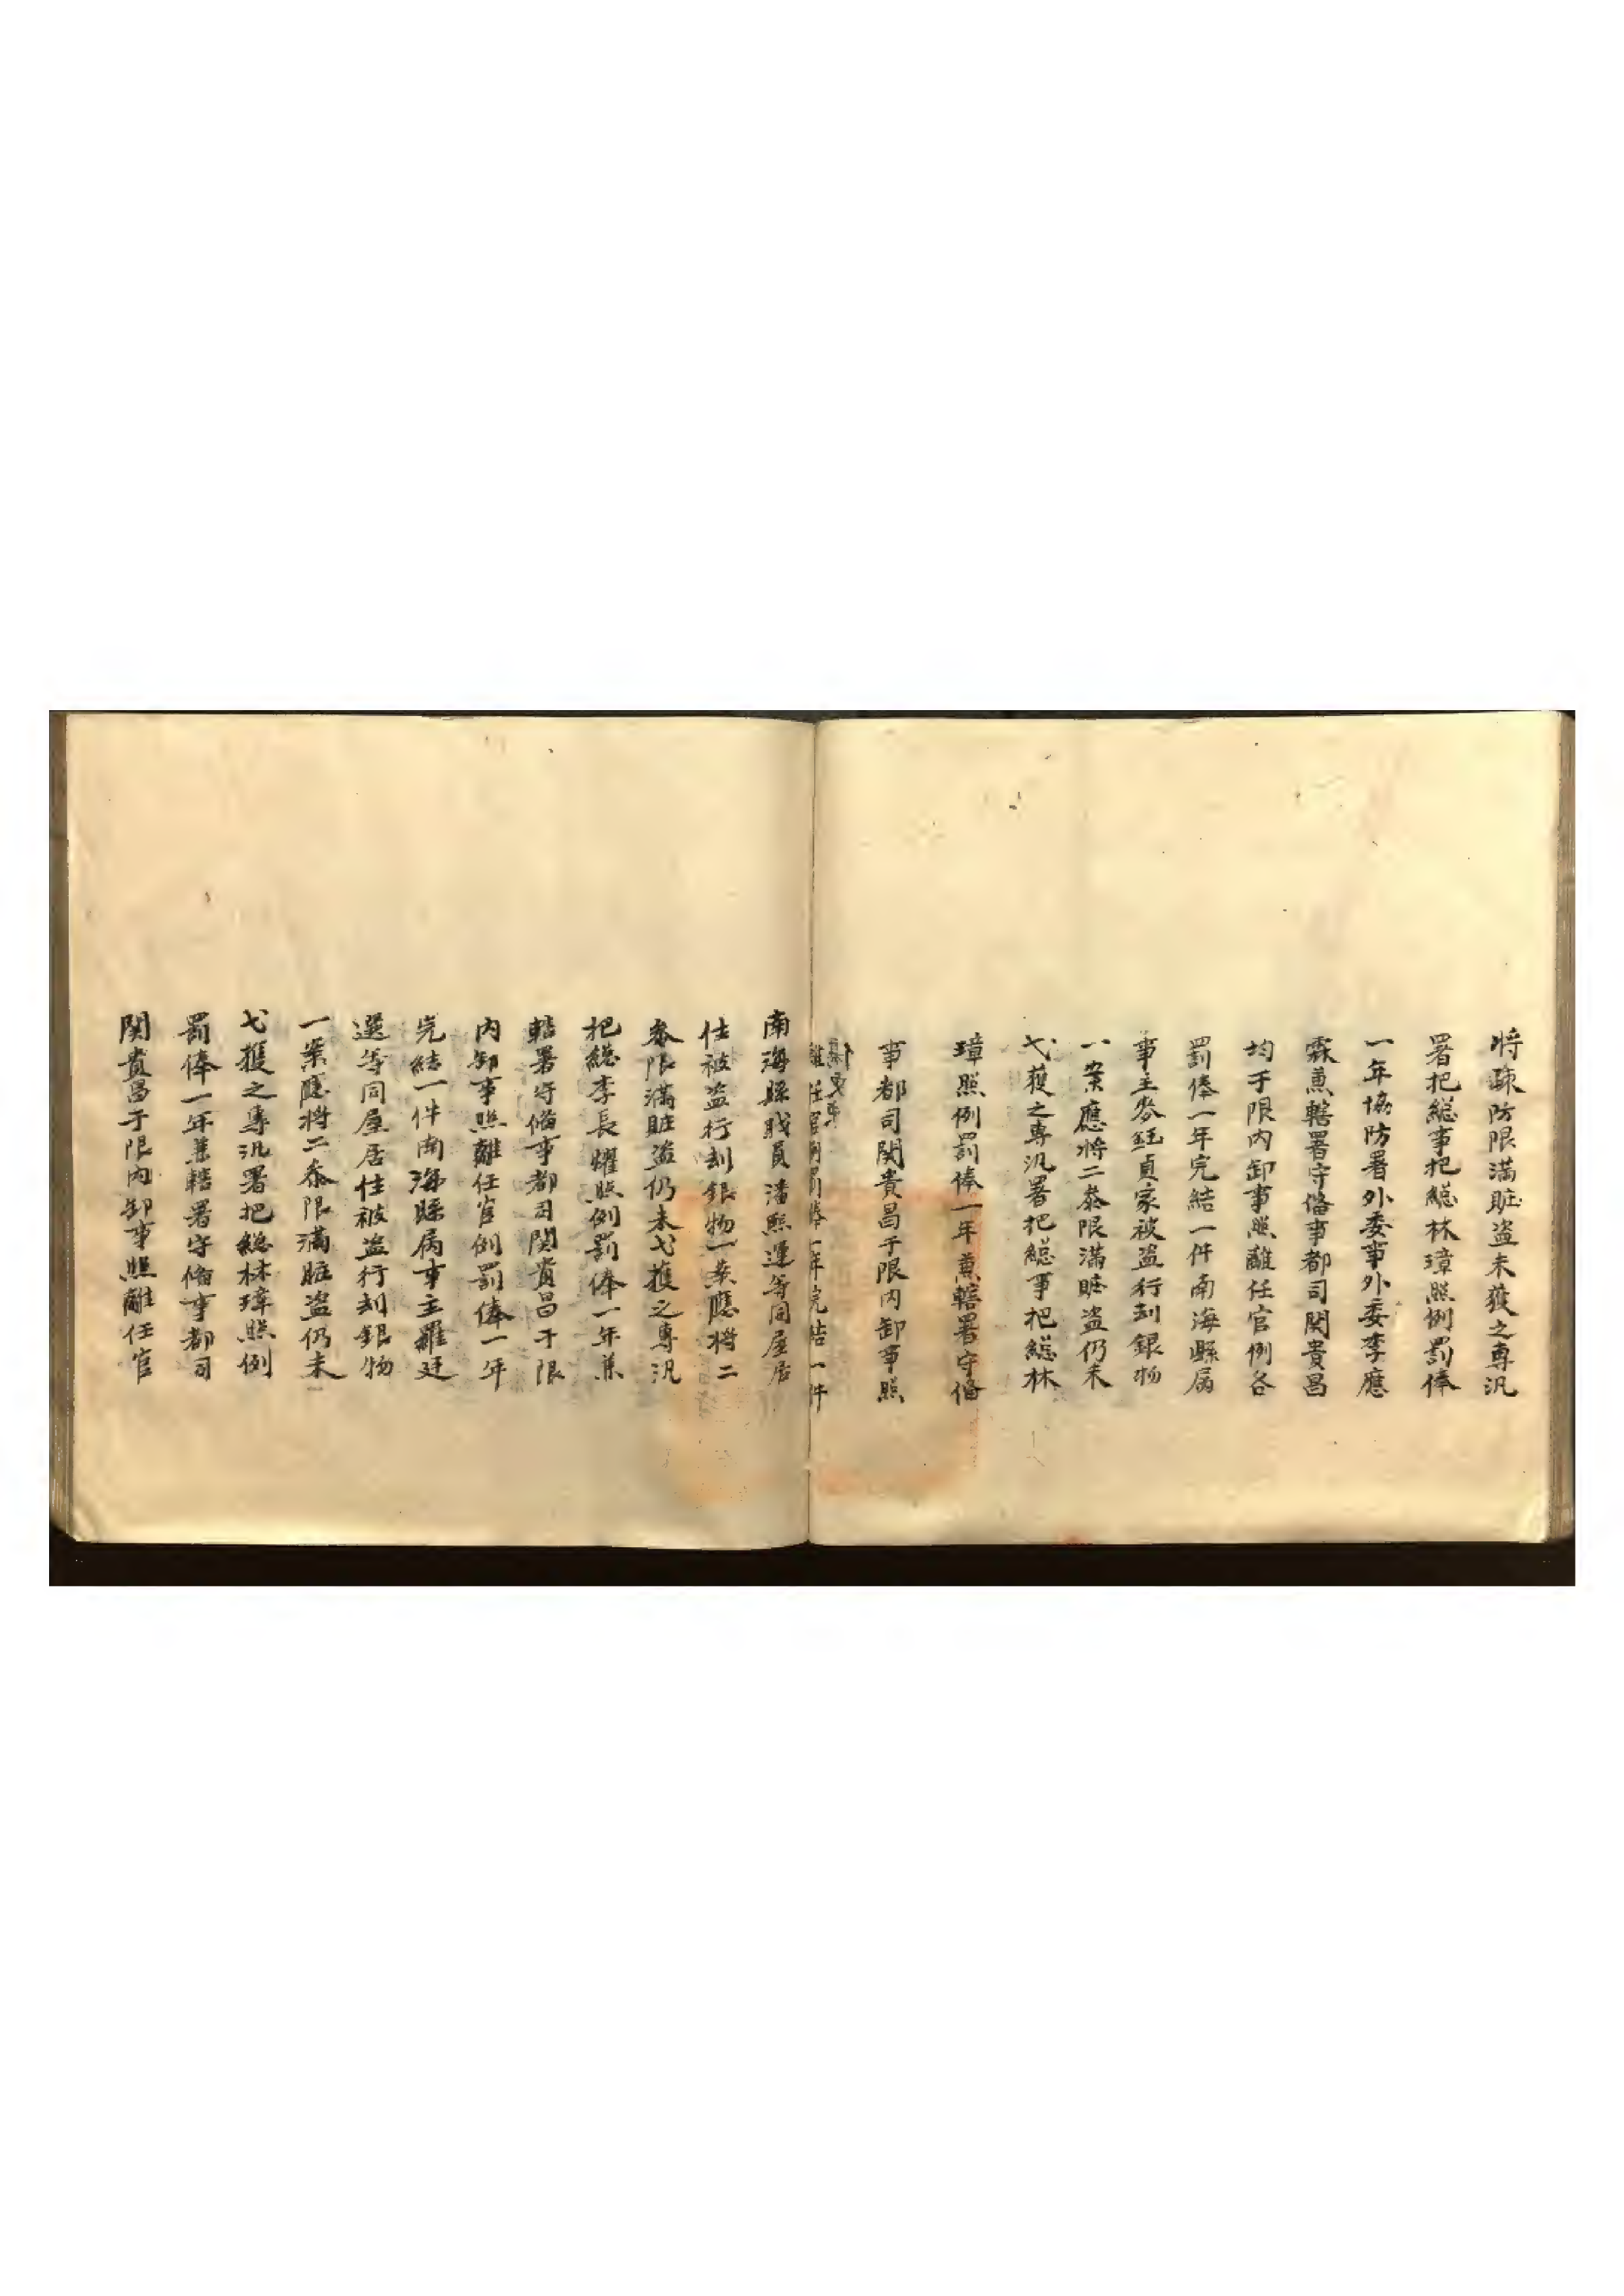 將疎防限滿賍盗未獲之專汛
署把総事把総林璋照例罰俸
一年協防署外委事外委李應
霖兼轄署守俻事都司関貴昌
均于限内卸事照離任官例各
罰俸一年完結一件南海縣属
事主麥鈺貞家被盗行刦銀物
一案應將二叅限滿賍盗仍未
弋獲之專汛署把総事把総林
璋照例罰俸一年兼轄署守俻
事都司関貴昌于限内卸事照
離任官例罰俸一年完結一件
南海縣職員潘熙運等同屋居
住被盗行刦銀物一案應將二
叅限滿賍盗仍未弋獲之專汛
把総李長耀照例罰俸一年兼
轄署守俻事都司関貴昌于限
内卸事照離任官例罰俸一年
完結一件南海縣属事主羅廷
選等同屋居住被盗行刦銀物
一案應將二叅限滿賍盗仍未
弋獲之專汛署把総林璋照例
罰俸一年兼轄署守俻事都司
関貴昌于限内卸事照離任官